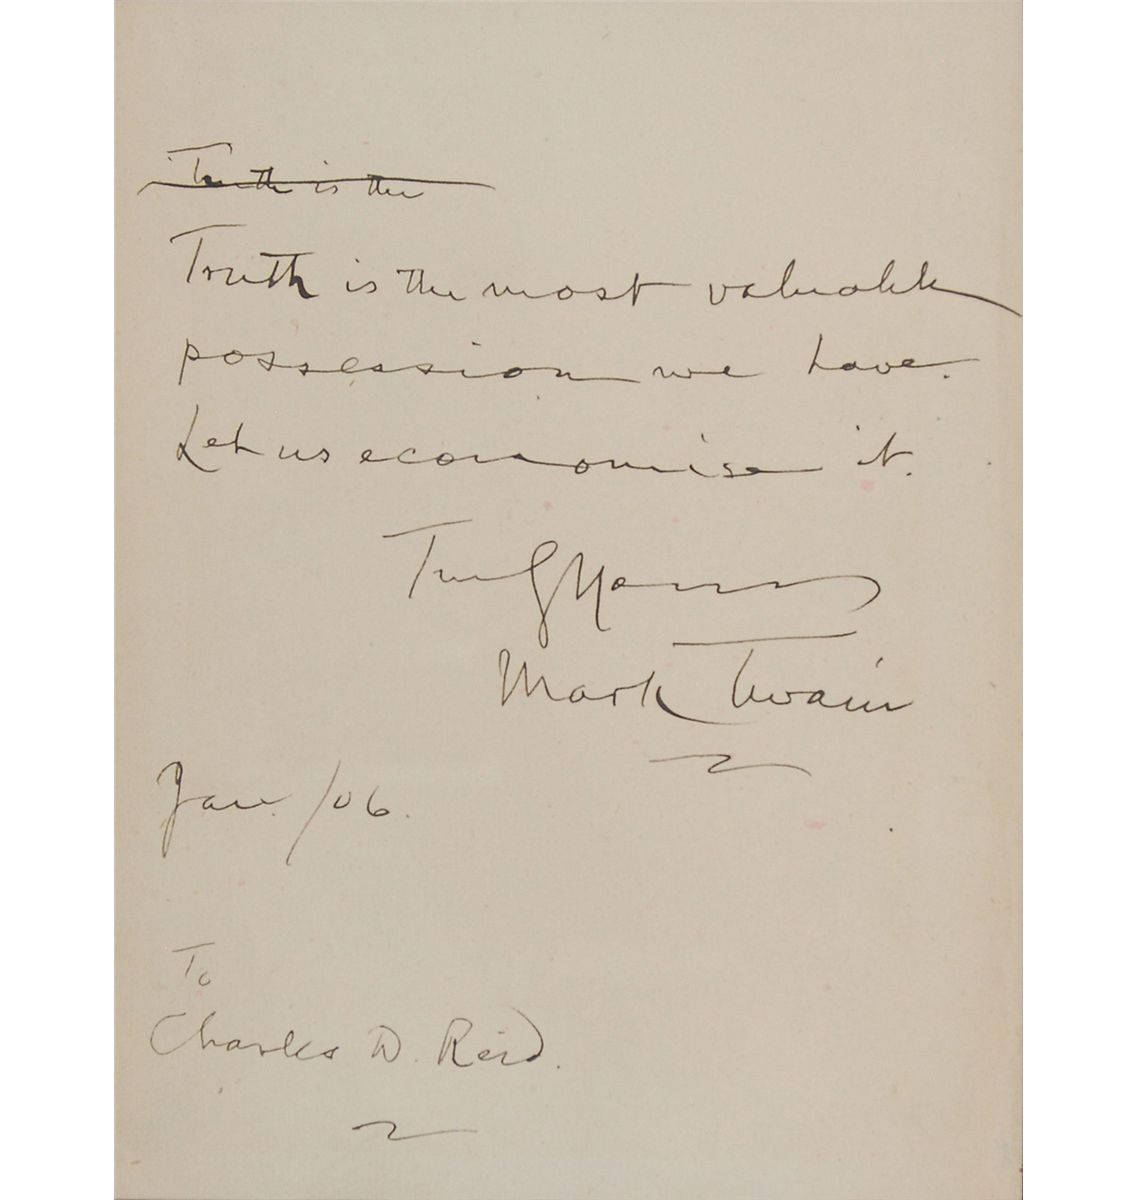 Truth is the
Truth is the most valuable
possession we have.
Let us economise it.
Truly Yours
Mark Twain
Jan. /06.
To
Charles D. Reid.